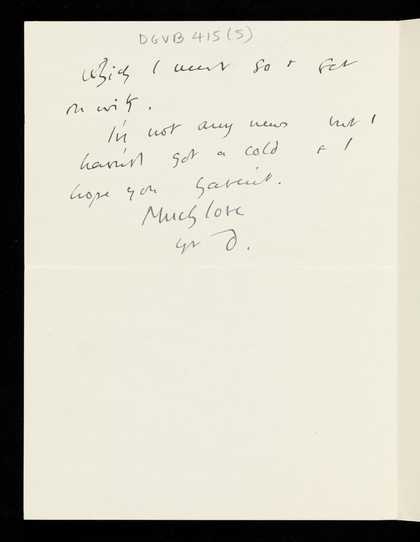 DGVB 415(5)
which I must go & get
on with.
I've not any news but I
haven't got a cold & I
hope you haven't.
Much love
yr D.